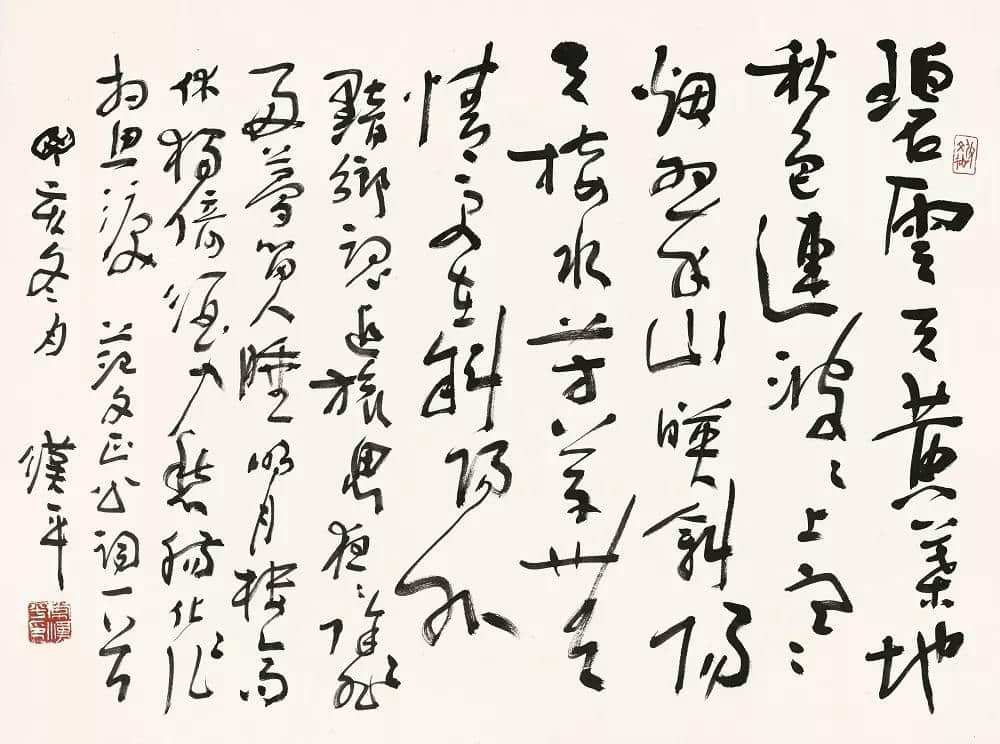 碧雲天黃葉地
秋色連波〻上寒
烟翠山映斜陽
天接水芳草無
情更在斜陽外
黯鄉魂追旅思夜〻除非
好夢留人睡明月樓高
休獨倚酒入愁腸化作
相思淚 范文正公詞一首
亥冬月 漢平